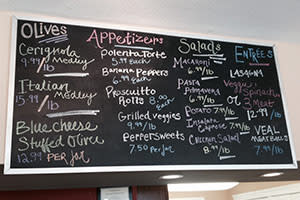 Olives
Cerignola
9.99/lb Medley
Italian
15.99/lb Medley
Blue cheese
Stuffed olive
12.99 per jar
Appetizers
Polenta Torte
5.99 Each
Banana Peppers
6.99/lb
Proscuitto
Rolls 8.00
Each
Grilled veggies
9.99/lb
Peppersweets
7.50 per jar
Salads
Macaroni
6.99/lb
Pasta
Primavera
6.99/lb
Potato
6.99/lb
Insalata
Caprese 7.99/lb
Chicken Salad
8.99/lb
Entrées
Lasagna
Veggie
Spinach
or
3 Meat
12.99/lb
Veal
Meatballs
7.99/lb